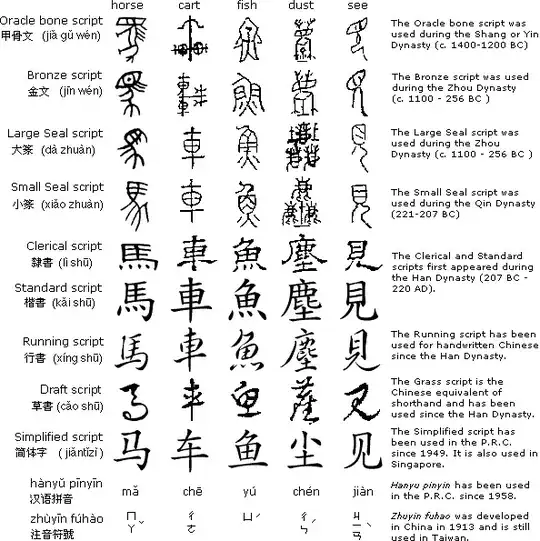 horse cart fish dust see
Oracle bone script
甲骨文 (jiǎ gǔ wén)
The Oracle bone script was
used during the Shang or Yin
Dynasty (c. 1400-1200 BC)
Bronze script
金文 (jīn wén)
The Bronze script was used
during the Zhou Dynasty
(c. 1100 - 256 BC )
Large Seal script
大篆 (dà zhuàn)
The Large Seal script was
used during the Zhou
Dynasty (c. 1100 - 256 BC )
Small Seal script
小篆 (xiǎo zhuàn)
The Small Seal script was
used during the Qin Dynasty
(221-207 BC)
Clerical script
隸書 (lì shū)
馬 車 魚 塵 見
Standard script
楷書 (kǎi shū)
馬 車 魚 塵 見
The Clerical and Standard
scripts first appeared during
the Han Dynasty (207 BC -
220 AD).
Running script
行書 (xíng shū)
馬 車 魚 塵 見
The Running script has been
used for handwritten Chinese
since the Han Dynasty.
Draft script
草書 (cǎo shū)
The Grass script is the
Chinese equivalent of
shorthand and has been
used since the Han Dynasty.
Simplified script
简体字 ( jiǎntǐzì )
马 车 鱼 尘 见
The Simplified script has
been used in the P.R.C.
since 1949. It is also used in
Singapore.
hànyǔ pīnyīn
汉语拼音
mǎ chē yú chén jiàn
Hanyu pinyin has been used
in the P.R.C. since 1958.
zhùyīn fúhào
注音符號
ㄇㄚˇ ㄔㄜ ㄩˊ ㄔㄣˊ ㄐㄧㄢˋ
Zhuyin fuhao was developed
in China in 1913 and is still
used in Taiwan.